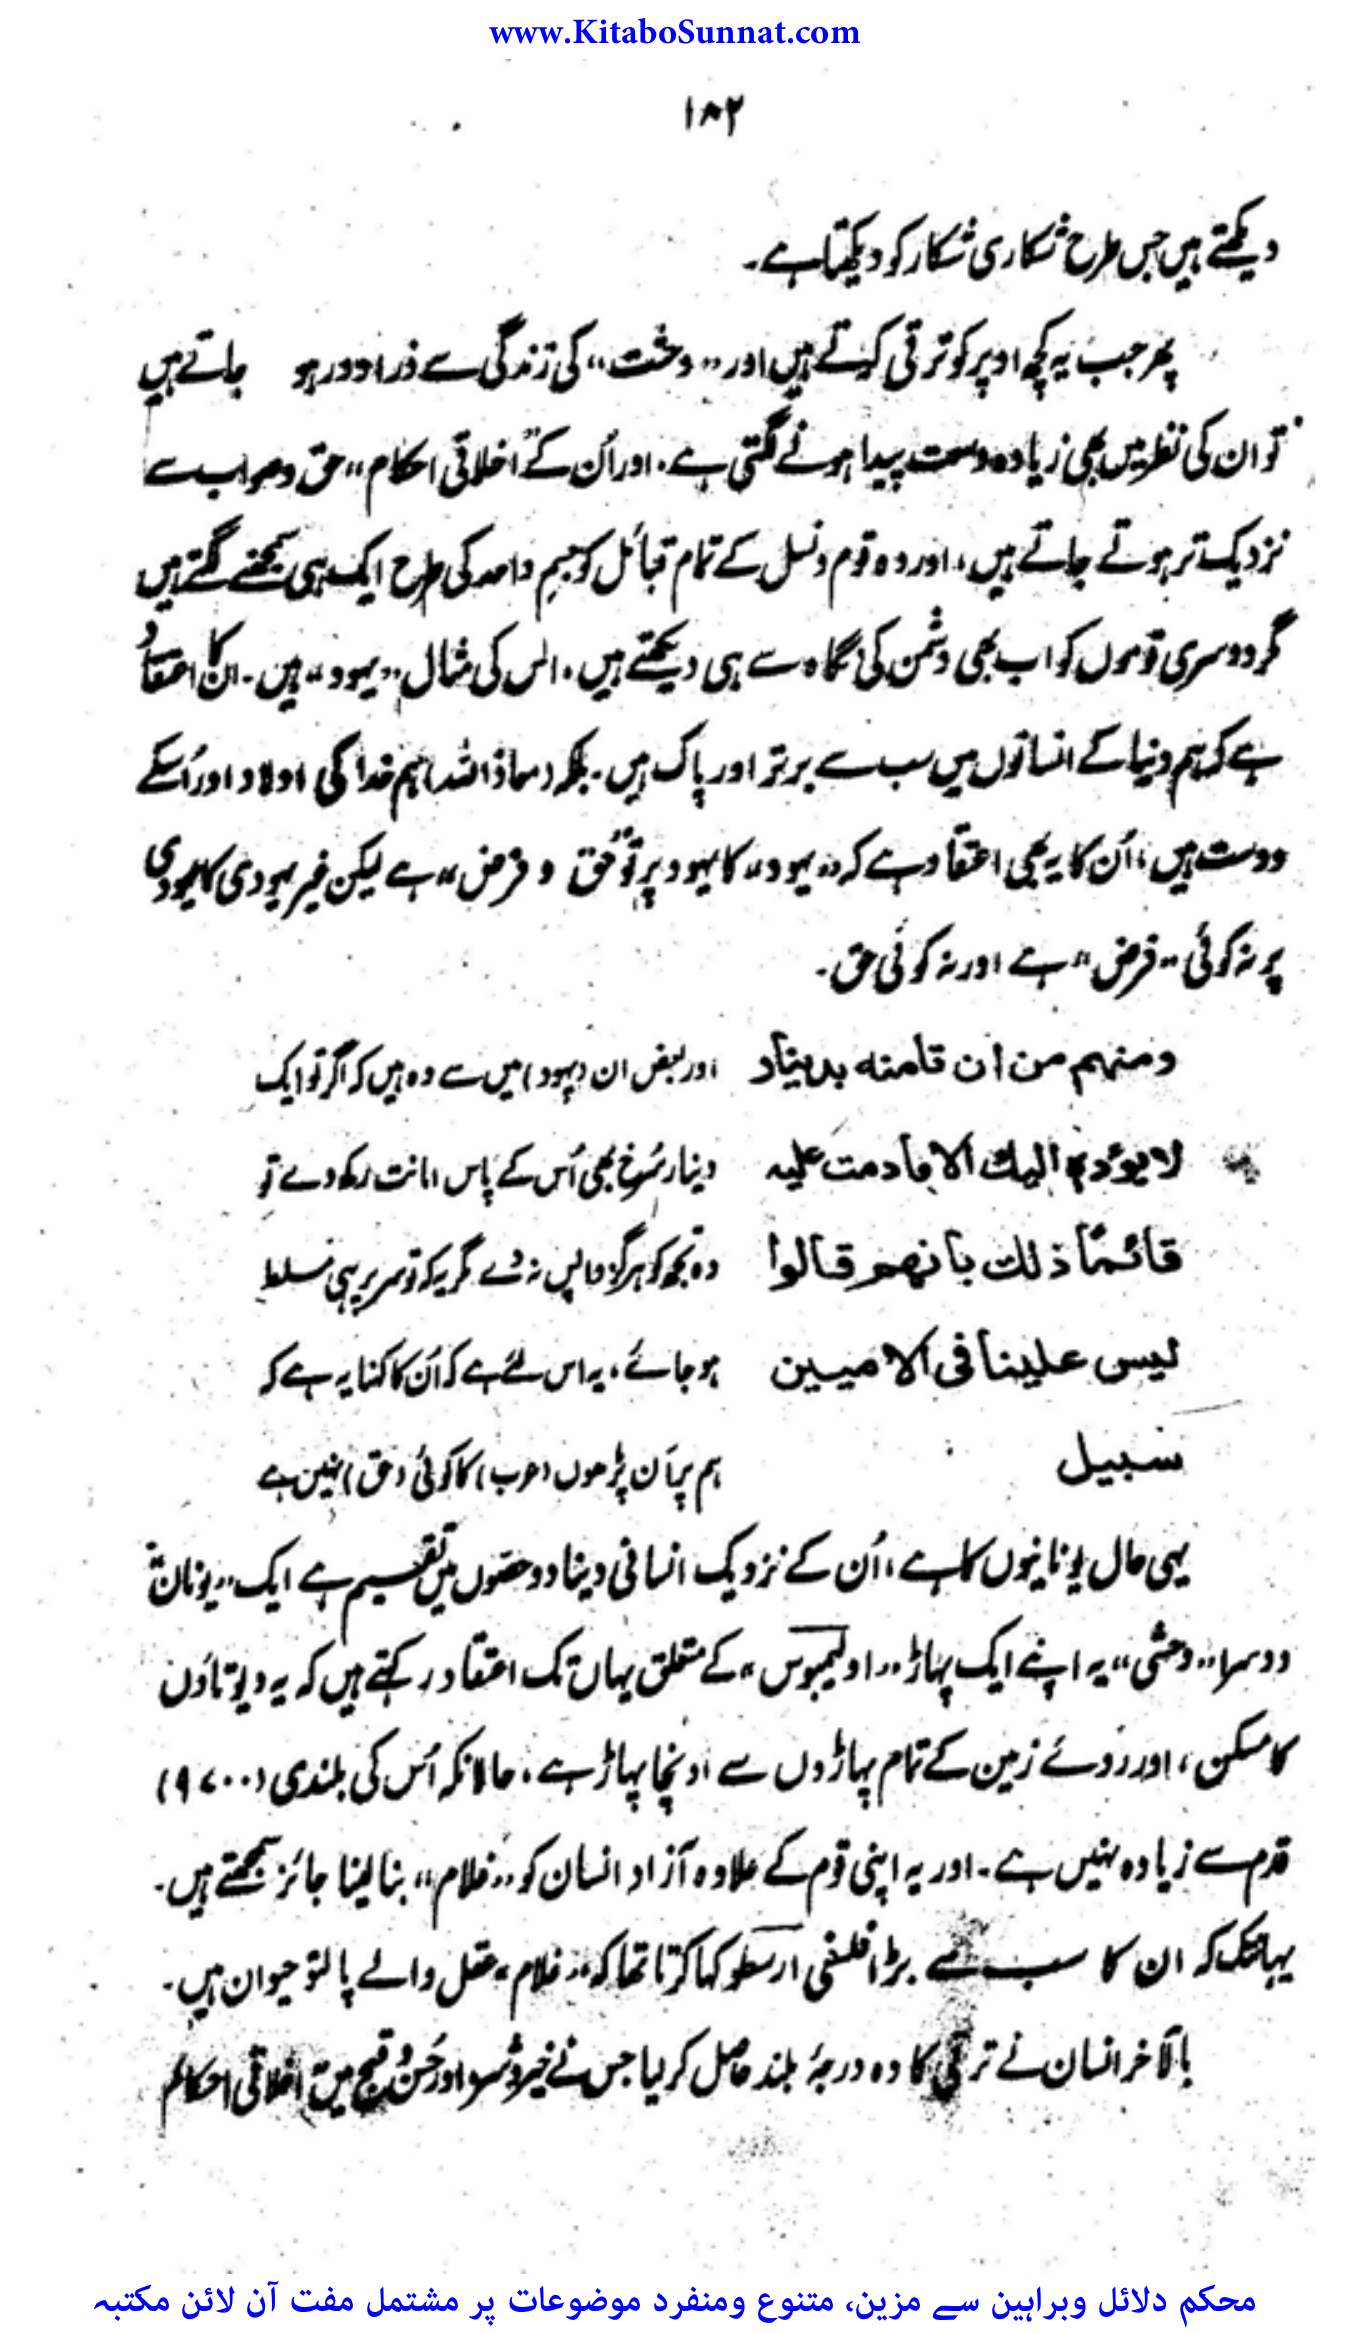 www.KitaboSunnat.com
۱۸۲
دیکھتے ہیں جس طرح شکاری شکار کو دیکھتا ہے۔
پھر جب یہ کچھ اوپر کو ترقی کرتے ہیں اور ”وحشت“ کی زندگی سے ذرا دور ہو جاتے ہیں
تو ان کی نظر میں بھی زیادہ وسعت پیدا ہونے لگتی ہے۔ اور اُن کے ”اخلاقی احکام“ حق و صواب سے
نزدیک تر ہوتے جاتے ہیں، اور وہ قوم و نسل کے تمام قبائل کو جسمِ واحد کی طرح ایک ہی سمجھنے لگتے ہیں
مگر دوسری قوموں کو اب بھی دشمن کی نگاہ سے ہی دیکھتے ہیں۔ اس کی مثال ”یہود“ ہیں۔ ان کا اعتقاد
ہے کہ ہم دنیا کے انسانوں میں سب سے برتر اور پاک ہیں۔ بلکہ (معاذ اللہ) ہم خدا کی اولاد اور اُسکے
دوست ہیں، اُن کا یہ بھی اعتقاد ہے کہ ”یہود“ کا یہود پر تو ”حق و فرض“ ہے لیکن غیر یہودی کا یہودی
پر نہ کوئی ”فرض“ ہے اور نہ کوئی حق۔
ومنہم من ان تامنہ بدینار اور بعض ان (یہود) میں سے وہ ہیں کہ اگر تو ایک
لا یؤدہ الیك الا ما دمت علیہ دینار سُرخ بھی اُس کے پاس امانت رکھ دے تو
قائمًا ذلك بانهم قالوا وہ تجھ کو ہرگز واپس نہ دے مگر یہ کہ تو سر پر ہی مسلط
لیس علینا فی الامیین ہو جائے، یہ اس لئے ہے کہ اُن کا کہنا یہ ہے کہ
سبیل ہم پر اَن پڑھوں (عرب) کا کوئی (حق) نہیں ہے
یہی حال یونانیوں کا ہے، اُن کے نزدیک انسانی دنیا دو حصّوں میں تقسیم ہے ایک ”یونان“
دوسرا ”وحشی“ یہ اپنے ایک پہاڑ ”اولیمپوس“ کے متعلق یہاں تک اعتقاد رکھتے ہیں کہ یہ دیوتاؤں
کا مسکن، اور روئے زمین کے تمام پہاڑوں سے اونچا پہاڑ ہے، حالانکہ اُس کی بلندی (۹۷۰۰)
قدم سے زیادہ نہیں ہے۔ اور یہ اپنی قوم کے علاوہ آزاد انسان کو ”غلام“ بنا لینا جائز سمجھتے ہیں۔
یہانتک کہ ان کا سب سے بڑا فلسفی ارسطو کہا کرتا تھا کہ ”غلام“ عقل والے پالتو حیوان ہیں۔
بالآخر انسان نے ترقی کا وہ درجۂ بلند حاصل کر لیا جس نے خیر و شر اور حُسن و قبح میں اخلاقی احکام
محکم دلائل وبراہین سے مزین، متنوع ومنفرد موضوعات پر مشتمل مفت آن لائن مکتبہ